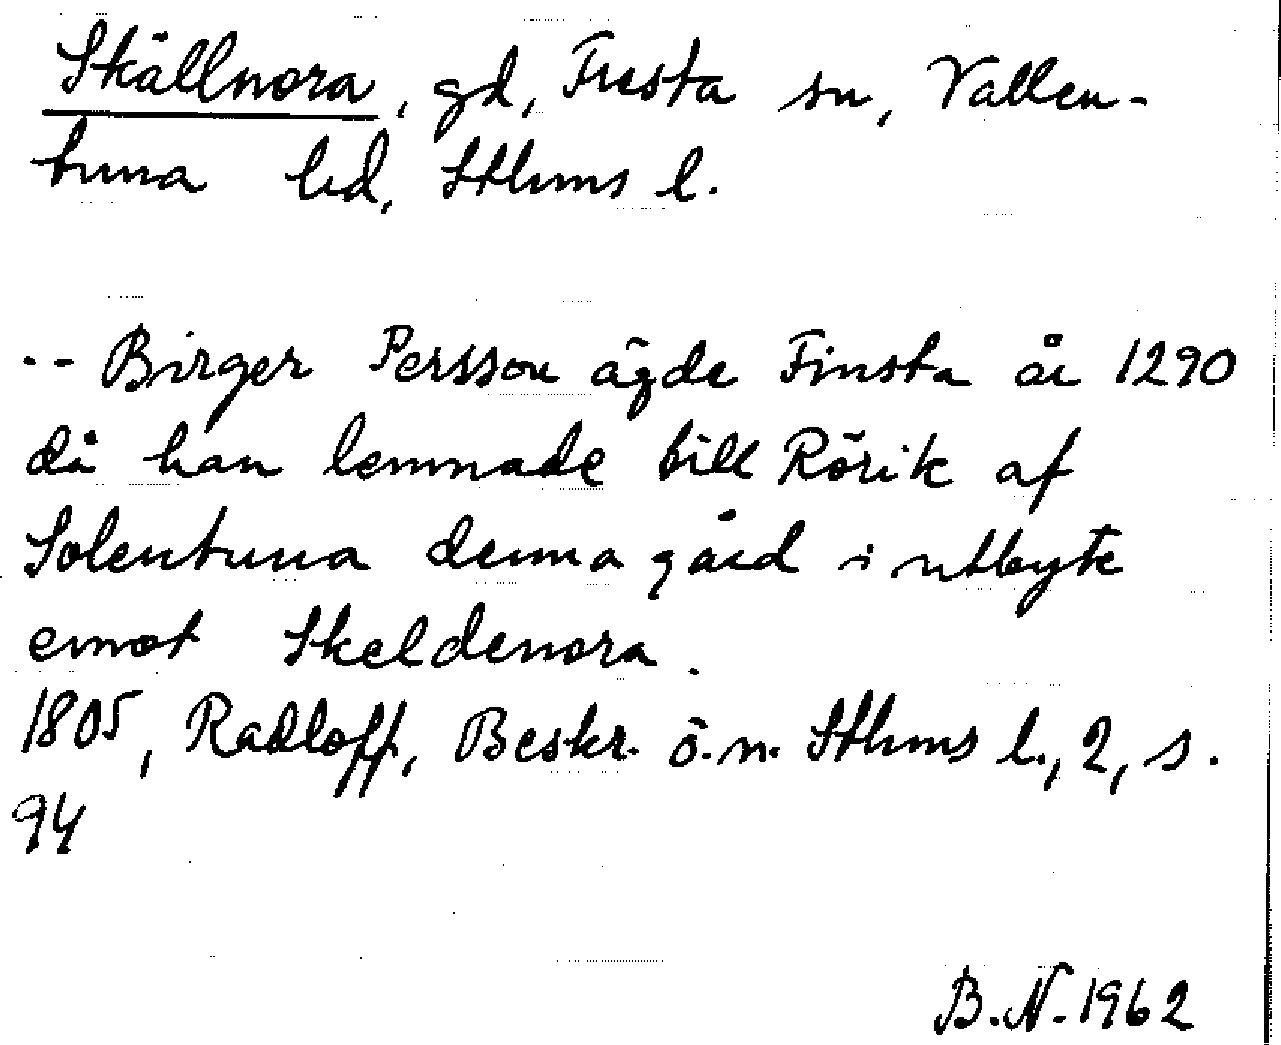 Skällnora, gd, Fresta sn, Vallen-
tuna hd, Sthms l.
-- Birger Persson ägde Finsta år 1290
då han lemnade till Rörik af
Solentuna denna gård i utbyte
emot Skeldenora.
1805, Radloff, Beskr. ö. n. Sthms l., 2, s.
94
B.N. 1962